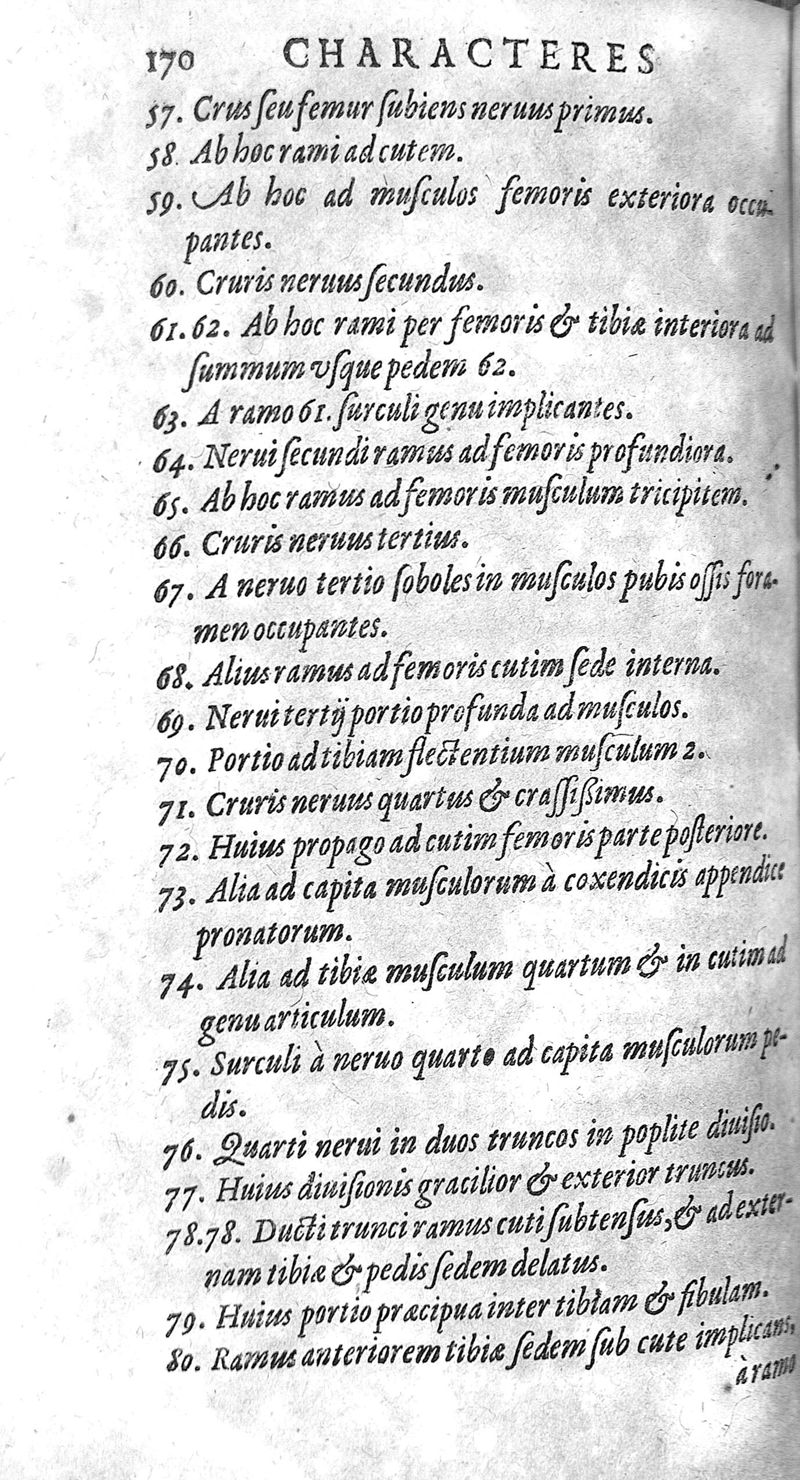 170 CHARACTERES
57. Crus ſeu femur ſubiens neruus primus.
58. Ab hoc rami ad cutem.
59. Ab hoc ad muſculos femoris exteriora occu-
pantes.
60. Cruris neruus ſecundus.
61. 62. Ab hoc rami per femoris & tibiæ interiora ad
ſummum vſque pedem 62.
63. A ramo 61. ſurculi genu implicantes.
64. Nerui ſecundi ramus ad femoris profundiora.
65. Ab hoc ramus ad femoris muſculum tricipitem.
66. Cruris neruus tertius.
67. A neruo tertio ſoboles in muſculos pubis oſſis fora-
men occupantes.
68. Alius ramus ad femoris cutim ſede interna.
69. Nerui tertij portio profunda ad muſculos.
70. Portio ad tibiam flectentium muſculum 2.
71. Cruris neruus quartus & craſſißimus.
72. Huius propago ad cutim femoris parte poſteriore.
73. Alia ad capita muſculorum à coxendicis appendice
pronatorum.
74. Alia ad tibiæ muſculum quartum & in cutim ad
genu articulum.
75. Surculi à neruo quarto ad capita muſculorum pe-
dis.
76. Quarti nerui in duos truncos in poplite diuiſio.
77. Huius diuiſionis gracilior & exterior truncus.
78. 78. Ducti trunci ramus cuti ſubtenſus, & ad exter-
nam tibiæ & pedis ſedem delatus.
79. Huius portio præcipua inter tibiam & fibulam.
80. Ramus anteriorem tibiæ ſedem ſub cute implicans,
à ramo